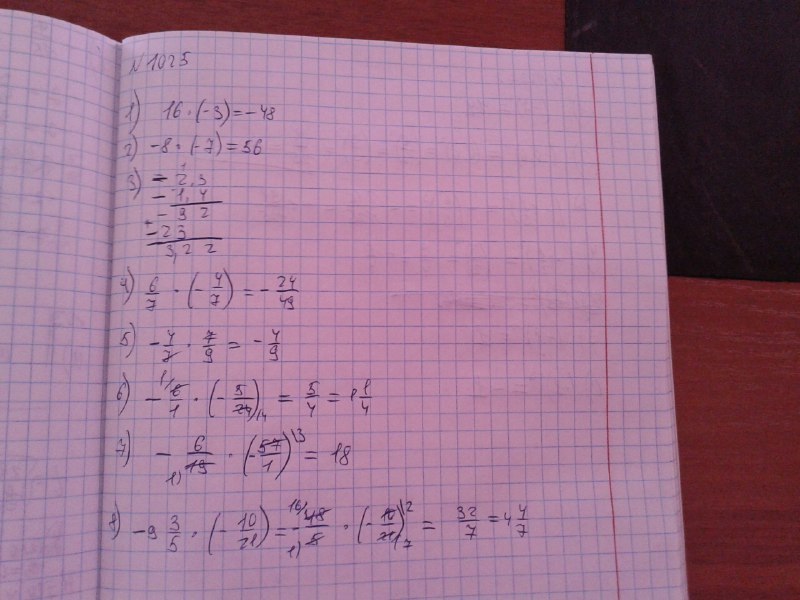 № 1025
1) 16 · (-3) = -48
2) -8 · (-7) = 56
3) - 2,3
- 1,4
- 9 2
- 23
3,2 2
4) 6/7 · (- 4/7) = - 24/49
5) - 4/7 · 7/9 = - 4/9
6) - 6/1 · (- 5/24) = 5/4 = 1 1/4
7) - 6/19 · (- 57/1) = 18
8) -9 3/5 · (- 10/21) = - 48/5 · (- 10/21) = 32/7 = 4 4/7